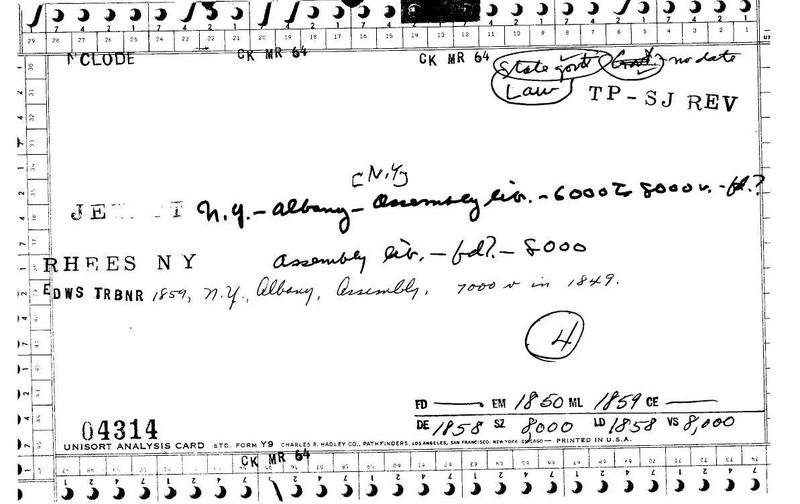 N'CLODE CK MR 64 CK MR 64 State govt no date
Law TP-SJ REV
[N.Y.]
JE T N.Y. - Albany - Assembly lib. - 6000 to 8000 v. - fd.?
RHEES NY Assembly lib. - fd? - 8000
EDWS TRBNR 1859, N.Y., Albany, Assembly, 7000 v in 1849.
4
FD EM 1850 ML 1859 CE
DE 1858 SZ 8000 LD 1858 VS 8,000
04314
UNISORT ANALYSIS CARD STD. FORM Y9 CHARLES R. HADLEY CO., PATHFINDERS, LOS ANGELES, SAN FRANCISCO, NEW YORK, CHICAGO — PRINTED IN U.S.A.
CK MR 64